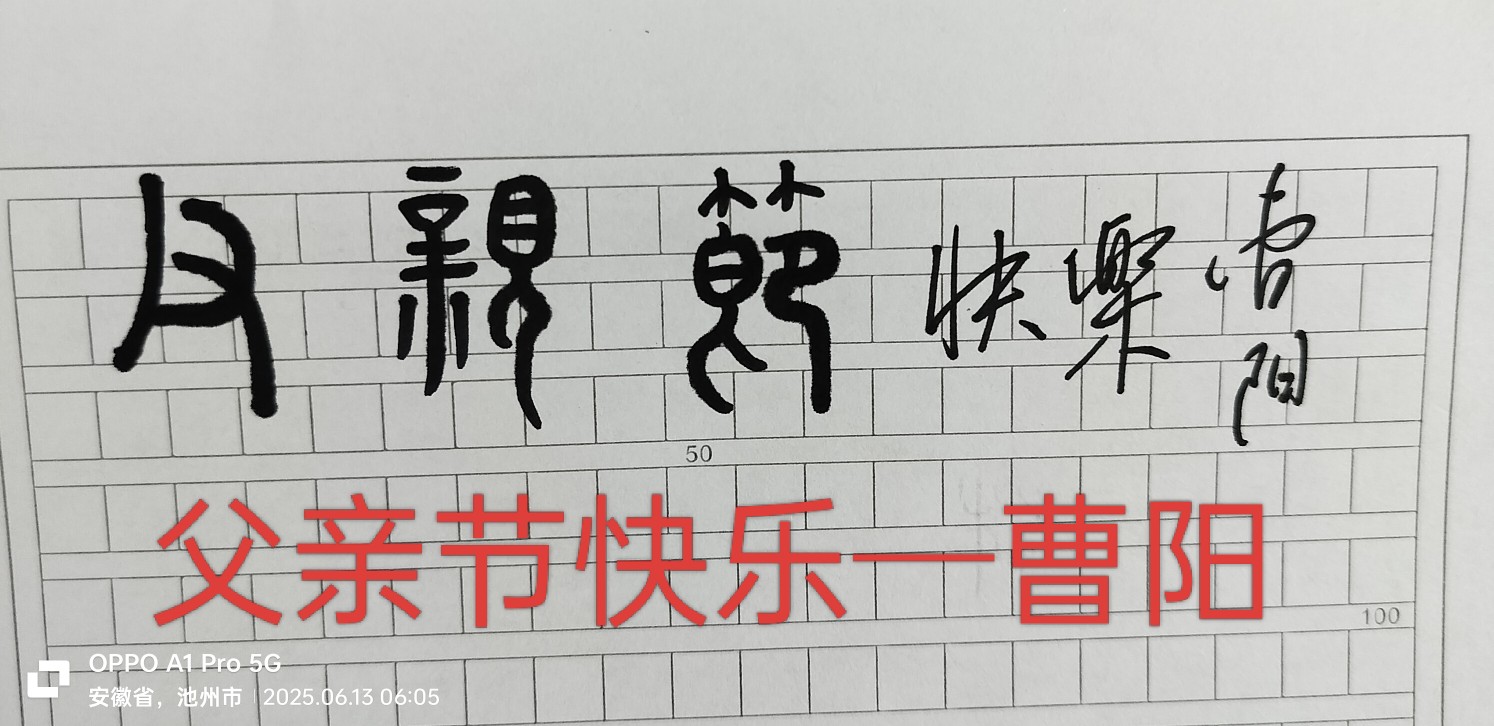 父親節快樂 曹阳
50
父亲节快乐—曹阳
100
OPPO A1 Pro 5G
安徽省，池州市 | 2025.06.13 06:05